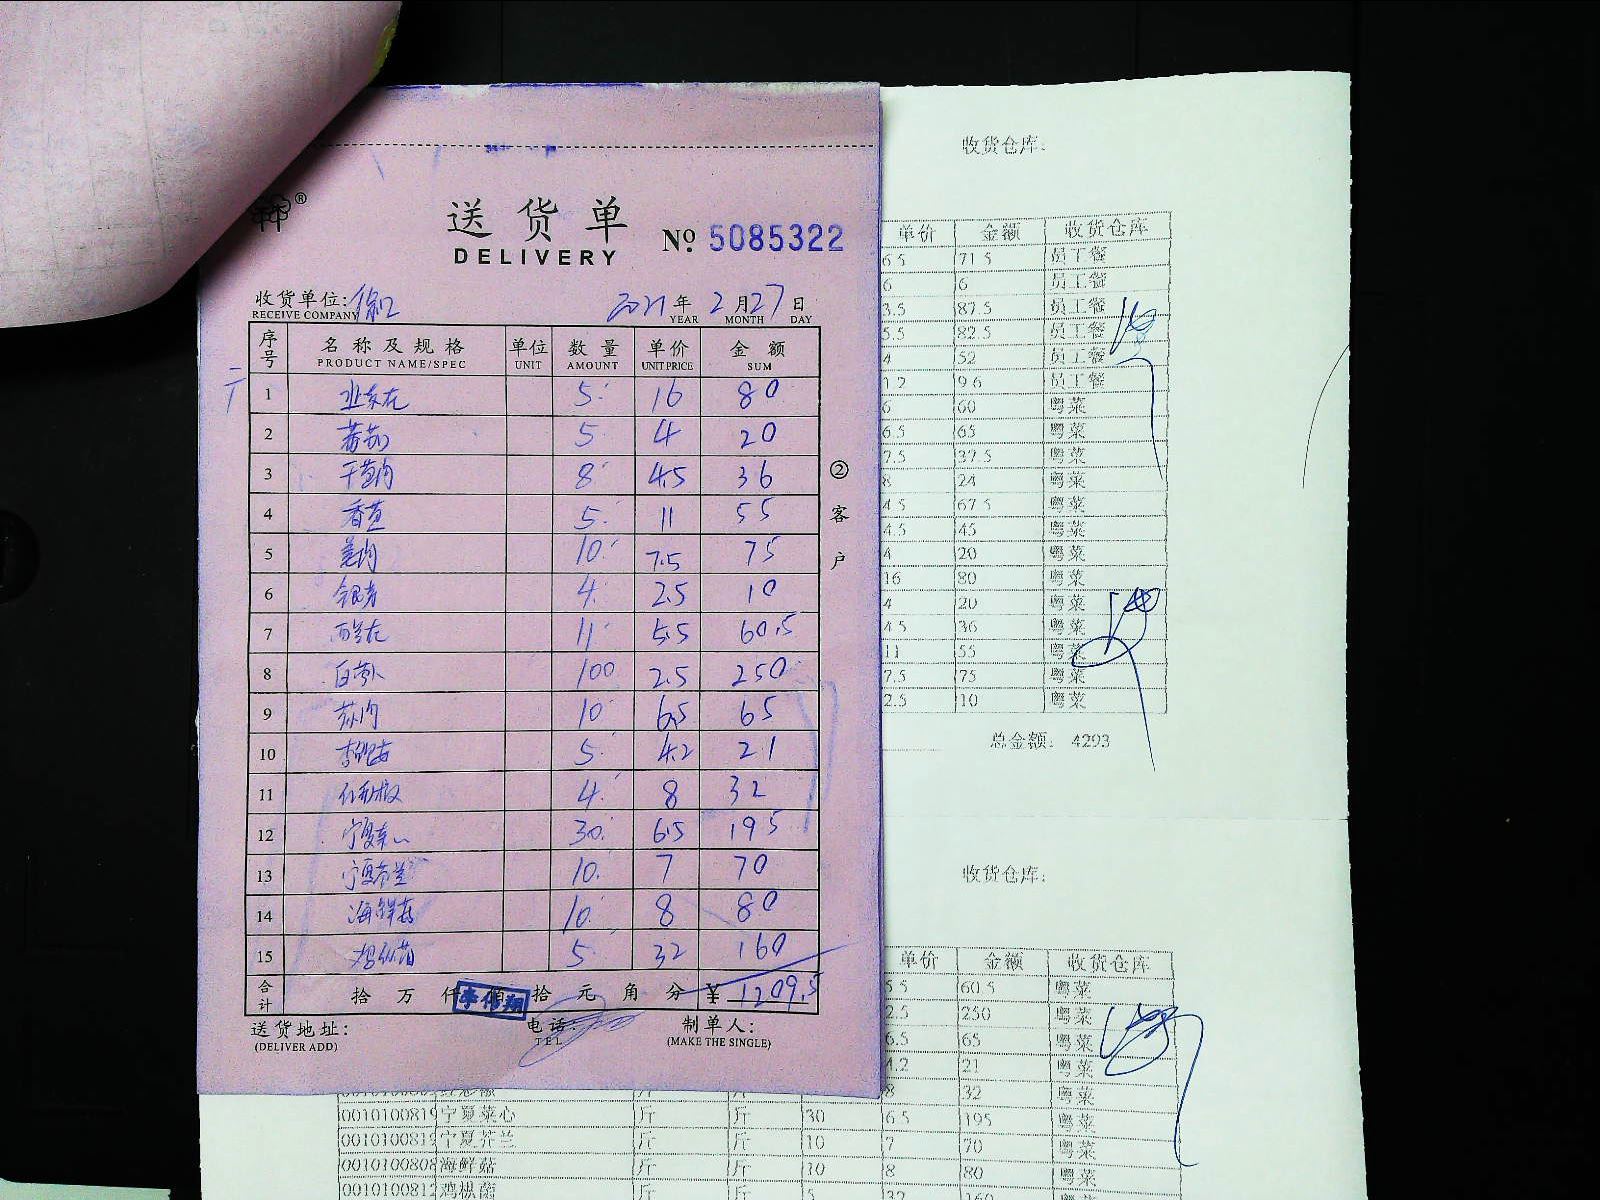 送货单
DELIVERY
No 5085322
收货单位:
RECEIVE COMPANY
2021年2月27日
YEAR MONTH DAY
序号 名称及规格 单位 数量 单价 金额
PRODUCT NAME/SPEC UNIT AMOUNT UNIT PRICE SUM
1 5 16 80
2 番茄 5 4 20
3 干葱肉 8 4.5 36
4 香芹 5 11 55
5 姜肉 10 7.5 75
6 银芽 4 2.5 10
7 西兰花 11 5.5 60.5
8 白萝卜 100 2.5 250
9 10 6.5 65
10 5 4.2 21
11 红彩椒 4 8 32
12 宁夏菜心 30 6.5 195
13 宁夏芥兰 10 7 70
14 海鲜菇 10 8 80
15 鸡枞菌 5 32 160
合计 拾 万 仟 佰 拾 元 角 分 ¥ 1209.5
送货地址:
(DELIVER ADD)
电话:
TEL
制单人:
(MAKE THE SINGLE)
②客户
收货仓库:
单价 金额 收货仓库
6.5 71.5 员工餐
6 6 员工餐
3.5 87.5 员工餐
5.5 82.5 员工餐
4 52 员工餐
1.2 9.6 员工餐
6 60 粤菜
6.5 65 粤菜
7.5 37.5 粤菜
8 24 粤菜
4.5 67.5 粤菜
4.5 45 粤菜
4 20 粤菜
16 80 粤菜
4 20 粤菜
4.5 36 粤菜
11 55 粤菜
7.5 75 粤菜
2.5 10 粤菜
总金额: 4293
收货仓库:
单价 金额 收货仓库
5.5 60.5 粤菜
2.5 250 粤菜
6.5 65 粤菜
4.2 21 粤菜
红彩椒 斤 斤 8 32 粤菜
宁夏菜心 斤 斤 30 6.5 195 粤菜
宁夏芥兰 斤 斤 10 7 70 粤菜
海鲜菇 斤 斤 10 8 80 粤菜
鸡枞菌 斤 斤 5 32 160 粤菜